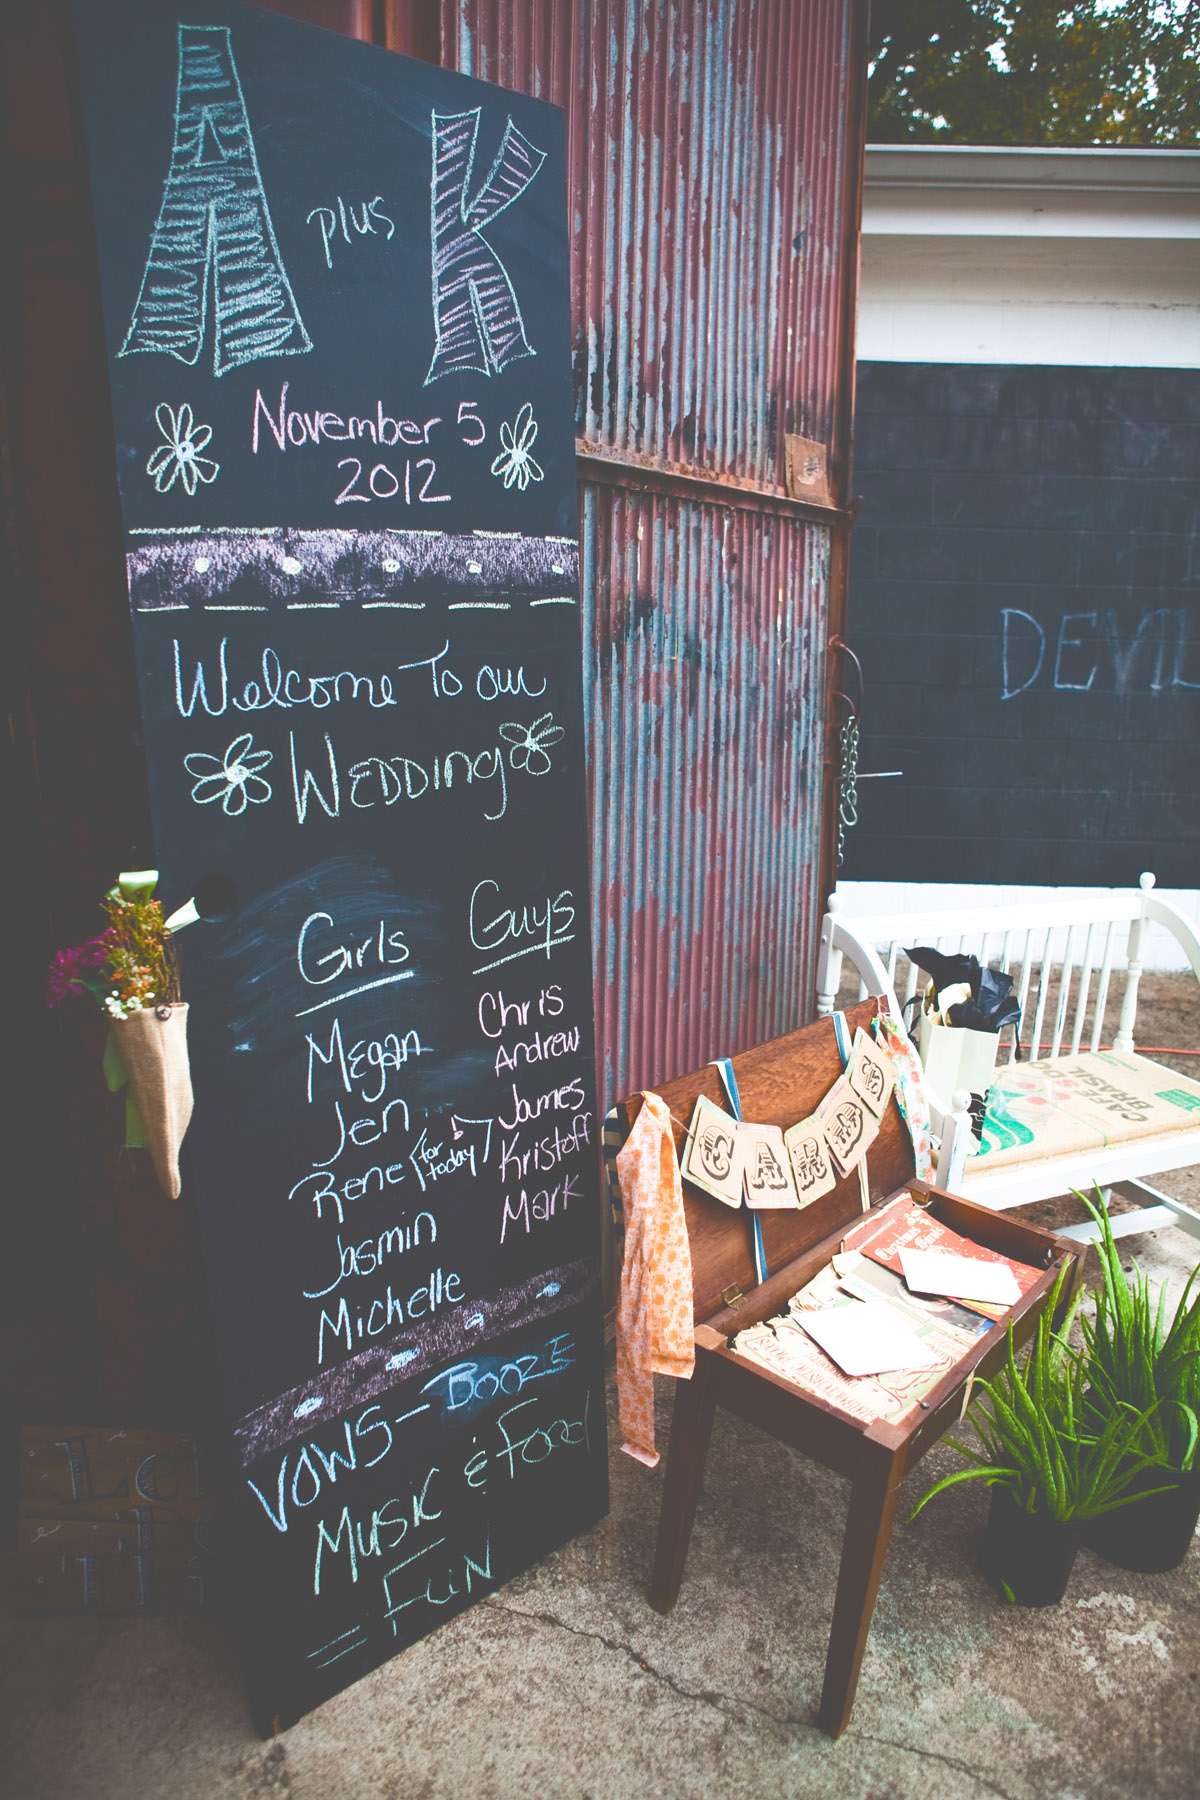 A plus K
November 5
2012
Welcome To our
Wedding
Girls
Megan
Jen
Rene (for today)
Jasmin
Michelle
Guys
Chris
Andrew
James
Kristoff
Mark
VOWS - BOOZE
Music & Food
= Fun
CARDZ
DEVIL
CAFES DO
BRASIL